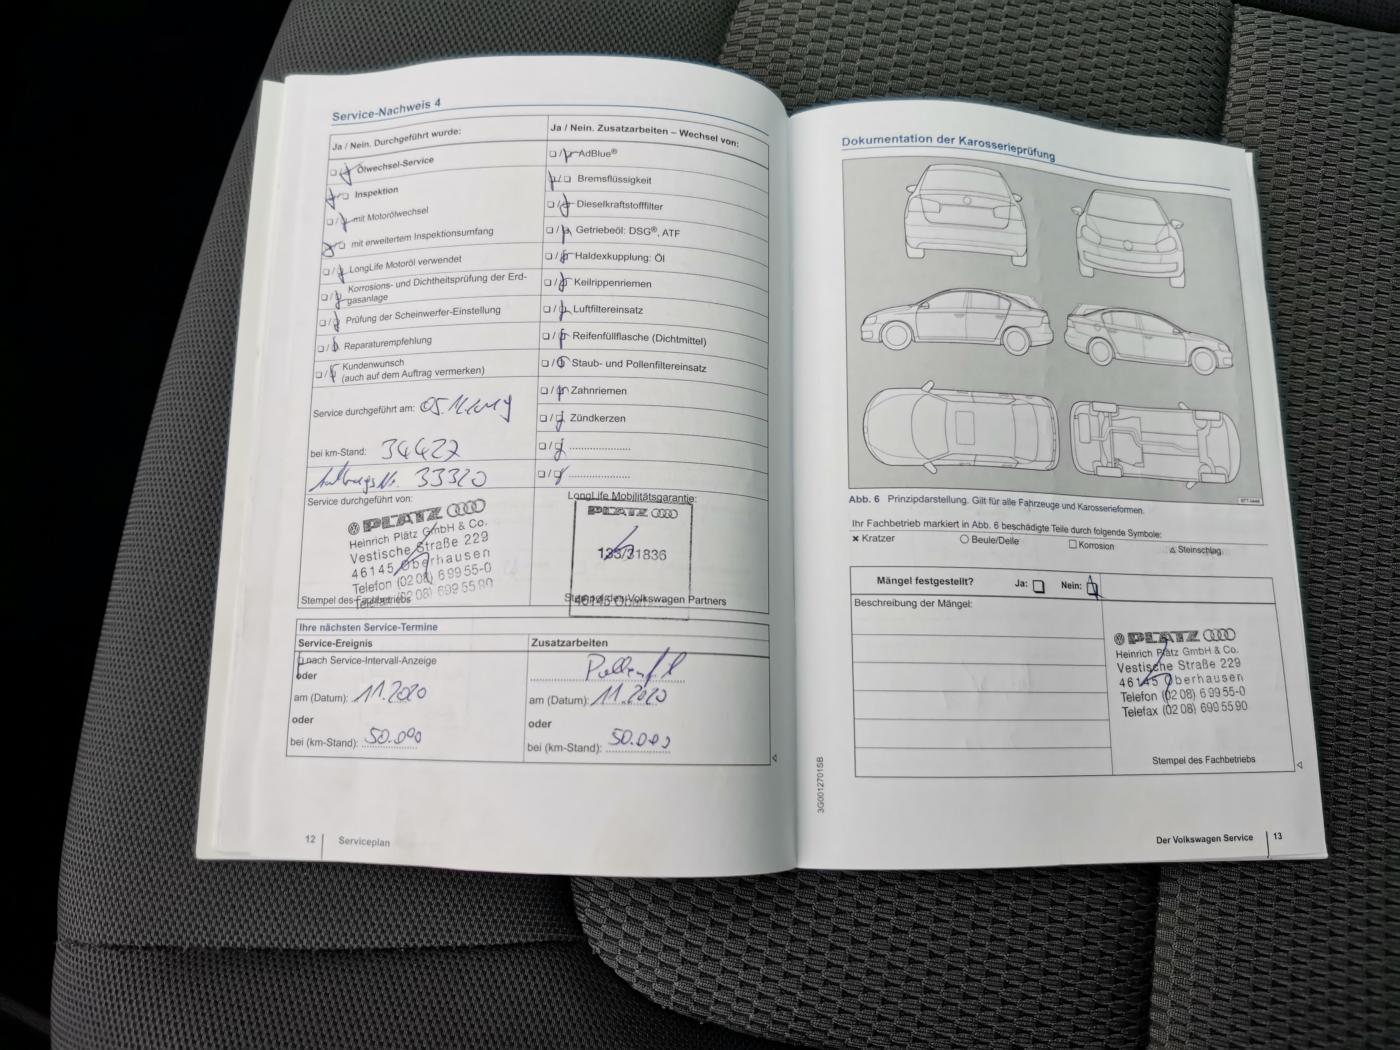 Service-Nachweis 4
Ja / Nein. Durchgeführt wurde:
Ölwechsel-Service
Inspektion
mit Motorölwechsel
mit erweitertem Inspektionsumfang
LongLife Motoröl verwendet
Korrosions- und Dichtheitsprüfung der Erd-
gasanlage
Prüfung der Scheinwerfer-Einstellung
Reparaturempfehlung
Kundenwunsch
(auch auf dem Auftrag vermerken)
Service durchgeführt am:
bei km-Stand: 34427
33320
Service durchgeführt von:
PLATZ
Heinrich Platz GmbH & Co.
Vestische Straße 229
46145 Oberhausen
Telefon (02 08) 6 99 55-0
Telefax (02 08) 699 55 90
Stempel des Fachbetriebs
Ja / Nein. Zusatzarbeiten – Wechsel von:
AdBlue®
Bremsflüssigkeit
Dieselkraftstofffilter
Getriebeöl: DSG®, ATF
Haldexkupplung: Öl
Keilrippenriemen
Luftfiltereinsatz
Reifenfüllflasche (Dichtmittel)
Staub- und Pollenfiltereinsatz
Zahnriemen
Zündkerzen
LongLife Mobilitätsgarantie:
PLATZ
Stempel des Volkswagen Partners
Ihre nächsten Service-Termine
Service-Ereignis
nach Service-Intervall-Anzeige
oder
am (Datum): 11.2020
oder
bei (km-Stand): 50.000
Zusatzarbeiten
am (Datum): 11.2020
oder
bei (km-Stand): 50.000
12 Serviceplan
Dokumentation der Karosserieprüfung
Abb. 6 Prinzipdarstellung. Gilt für alle Fahrzeuge und Karosserieformen.
Ihr Fachbetrieb markiert in Abb. 6 beschädigte Teile durch folgende Symbole:
Kratzer Beule/Delle Korrosion Steinschlag
Mängel festgestellt? Ja: Nein:
Beschreibung der Mängel:
PLATZ
Heinrich Platz GmbH & Co.
Vestische Straße 229
46145 Oberhausen
Telefon (02 08) 6 99 55-0
Telefax (02 08) 699 55 90
Stempel des Fachbetriebs
3G0012701SB
Der Volkswagen Service 13